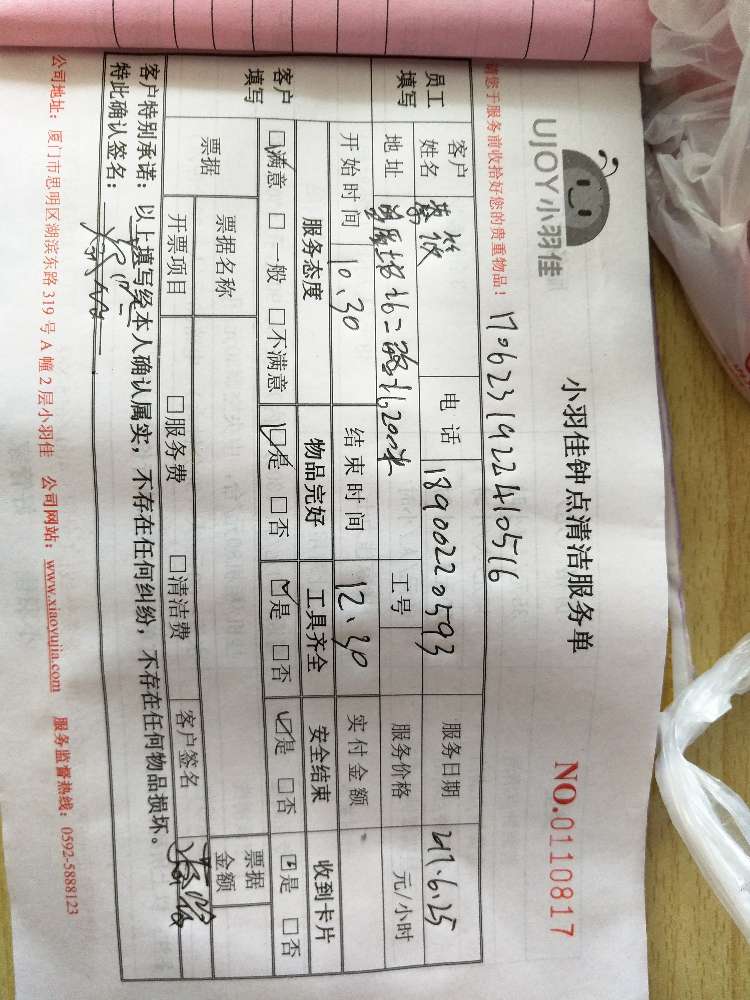 UJOY小羽佳
小羽佳钟点清洁服务单
NO.0110817
请您于服务前收拾好您的贵重物品！
1706231922410516
员工填写 客户姓名 电话 18900220593 服务日期 217.6.25
地址 工号 服务价格 元/小时
开始时间 10.30 结束时间 12.30 实付金额
客户填写 服务态度 物品完好 工具齐全 安全结束 收到卡片
☑满意 □一般 □不满意 ☑是 □否 ☑是 □否 ☑是 □否 ☑是 □否
票据 票据名称 票据金额
开票项目 □服务费 □清洁费 客户签名
客户特别承诺：以上填写经本人确认属实，不存在任何纠纷，不存在任何物品损坏。
特此确认签名：
公司地址：厦门市思明区湖滨东路319号A幢2层小羽佳 公司网站：www.xiaoyujia.com 服务监督热线：0592-5888123